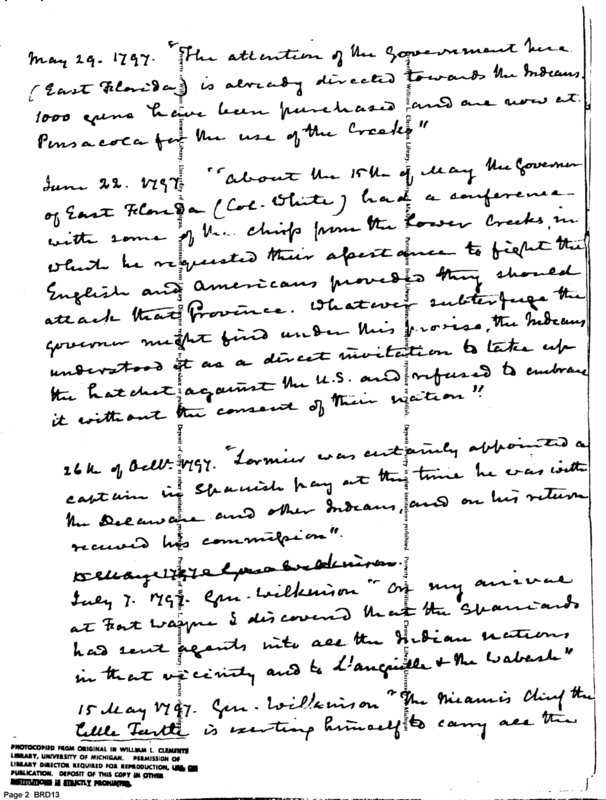 May 29. 1797. "The attention of the Government here
(East Florida) is already directed towards the Indians.
1000 guns have been purchased and are now at
Pensacola for the use of the Creeks"
June 22. 1797 "About the 15th of May the Governor
of East Florida (Col. White) had a conference
with some of the chiefs from the Lower Creeks, in
which he requested their assistance to fight the
English and Americans provided they should
attack that Province. Whatever subterfuge the
governor might find under this proviso, the Indians
understood it as a direct invitation to take up
the hatchet against the U.S. and refused to embrace
it without the consent of their nation".
26th of Octbr 1797. "Lormier was certainly appointed a
captain in Spanish pay at the time he was with
the Delaware and other Indians, and on his return
received his commission".
July 7. 1797. Gen. Wilkinson "On my arrival
at Fort Wayne I discovered that the Spaniards
had sent agents into all the Indian nations
in that vicinity and to L'anguille & the Wabash"
15 May 1797. Gen. Wilkinson "The Miamis Chief the
Little Turtle is exerting himself to carry all the
PHOTOCOPIED FROM ORIGINAL IN WILLIAM L. CLEMENTS
LIBRARY, UNIVERSITY OF MICHIGAN. PERMISSION OF
LIBRARY DIRECTOR REQUIRED FOR REPRODUCTION, USE OR
PUBLICATION. DEPOSIT OF THIS COPY IN OTHER
INSTITUTIONS IS STRICTLY PROHIBITED.
Page 2 BRD13